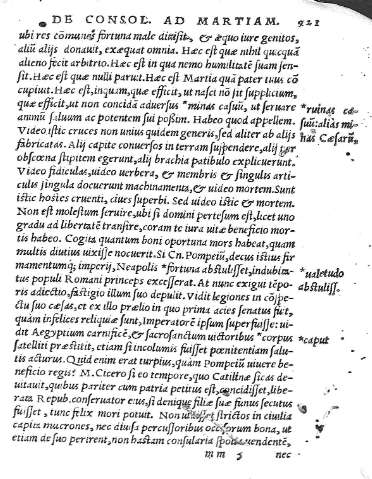 DE CONSOL. AD MARTIAM. 921
ubi res cōmunes fortuna male diuisit, & æquo iure genitos,
aliū alijs donauit, exæquat omnia. Hæc est quæ nihil quicquā
alieno fecit arbitrio. Hæc est in qua nemo humilitatē suam sen-
sit. Hæc est quæ nulli paruit. Hæc est Martia quā pater tuus cō
cupiuit. Hæc est, inquam, quæ efficit, ut nasci nō sit supplicium,
quæ efficit, ut non concidā aduersus *minas casuū, ut seruare
animū saluum ac potentem sui possum. Habeo quod appellem.
Video istic cruces non unius quidem generis, sed aliter ab alijs
fabricatas. Alij capite conuersos in terram suspendere, alij per
obscœna stipitem egerunt, alij brachia patibulo explicuerunt.
Video fidiculas, uideo uerbera, & membris & singulis arti-
culis singula docuerunt machinamenta, & uideo mortem. Sunt
istic hostes cruenti, ciues superbi. Sed uideo istic & mortem.
Non est molestum seruire, ubi si domini pertesum est, licet uno
gradu ad libertatē transire, coram te iura uitæ beneficio mor-
tis habeo. Cogita quantum boni oportuna mors habeat, quam
multis diutius uixisse nocuerit. Si Cn. Pompeiū, decus istius fir
mamentumq; imperij, Neapolis *fortuna abstulisset, indubita-
tus populi Romani princeps excesserat. At nunc exigui tēpo-
ris adiectio, fastigio illum suo depulit. Vidit legiones in cōspe-
ctu suo cæsas, et ex illo prælio in quo prima acies senatus fuit,
quàm infelices reliquiæ sunt, Imperatorē ipsum superfuisse: ui-
dit Aegyptium carnificē, & sacrosanctum uictoribus *corpus
satelliti præstitit, etiam si incolumis fuisset pœnitentiam salu-
tis acturus. Quid enim erat turpius, quàm Pompeiū uiuere be-
neficio regis? M. Cicero si eo tempore, quo Catilinæ sicas de-
uitauit, quibus pariter cum patria petitus est, concidisset, libe-
rata Repub. conseruator eius, si denique filiæ suæ funus secutus
fuisset, tunc felix mori potuit. Non uidisset strictos in ciuilia
capita mucrones, nec diuisa percussoribus occisorum bona, ut
etiam de suo perirent, non hastam consularia spolia uendentē,
m m 5 nec
*ruinas ca-
suū: aliàs mi-
nas Cæsarū.
*ualetudo
abstulisset.
*caput